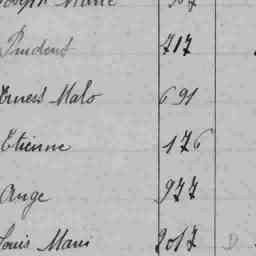 Joseph Marie
Prudent 717
Ernest Malo 691
Etienne 176
Ange 977
Louis Marie 2017 D